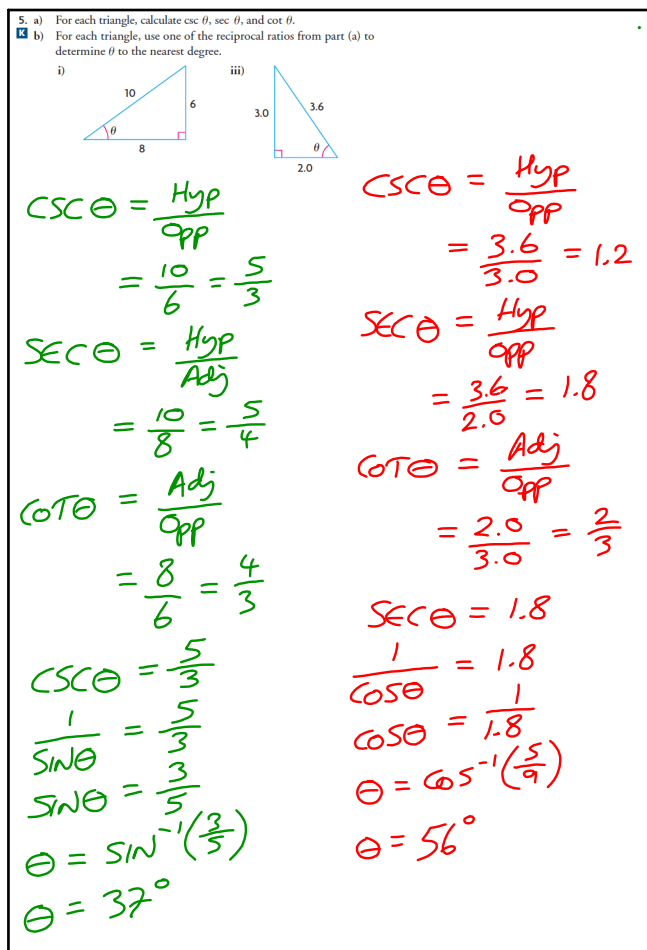 5. a) For each triangle, calculate csc θ, sec θ, and cot θ.
K b) For each triangle, use one of the reciprocal ratios from part (a) to
determine θ to the nearest degree.
i)
10
6
θ
8
iii)
3.0
3.6
θ
2.0
CSC θ = Hyp/Opp
= 10/6 = 5/3
SEC θ = Hyp/Adj
= 10/8 = 5/4
COT θ = Adj/Opp
= 8/6 = 4/3
CSC θ = 5/3
1/SIN θ = 5/3
SIN θ = 3/5
θ = SIN⁻¹(3/5)
θ = 37°
CSC θ = Hyp/Opp
= 3.6/3.0 = 1.2
SEC θ = Hyp/Opp
= 3.6/2.0 = 1.8
COT θ = Adj/Opp
= 2.0/3.0 = 2/3
SEC θ = 1.8
1/COS θ = 1.8
COS θ = 1/1.8
θ = COS⁻¹(5/9)
θ = 56°